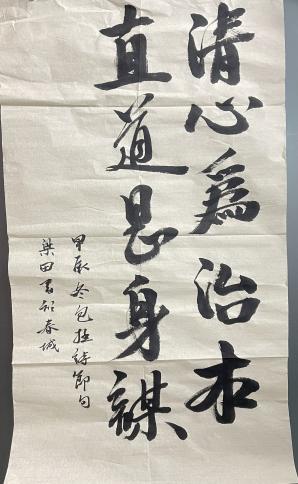 清心爲治本
直道是身謀
甲辰冬包拯詩節句
梁田書於春城